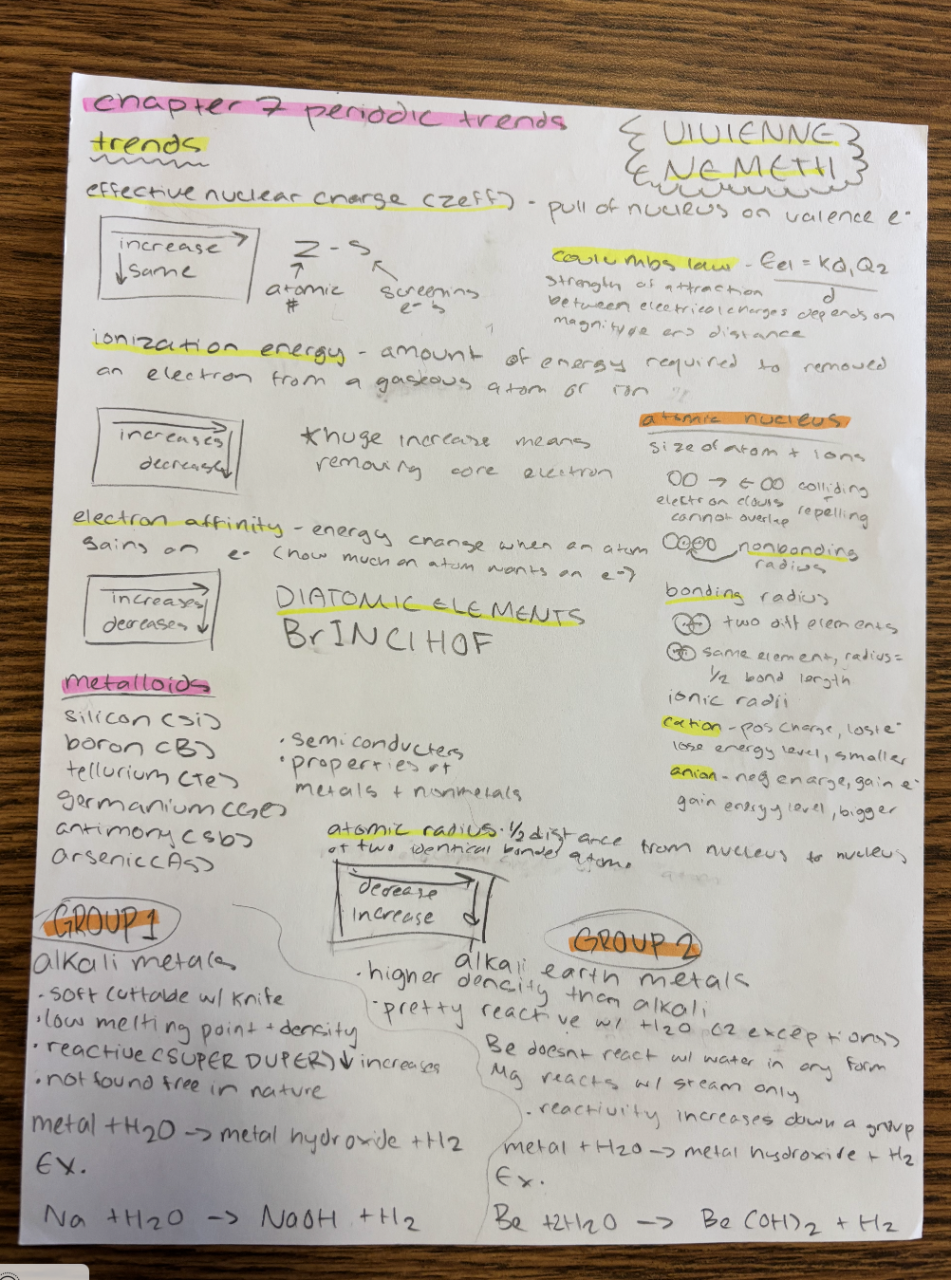 chapter 7 periodic trends
{VIVIENNE
NEMETH}
trends
effective nuclear charge (zeff) - pull of nucleus on valence e-
increase →
↓ same
Z - S
↑ atomic #
↖ screening e-s
coulumbs law - Eel = KQ1Q2 / d
strength of attraction
between electrical charges depends on
magnitude and distance
ionization energy - amount of energy required to removed
an electron from a gaseous atom or ion
increases →
decreases ↓
*huge increase means
removing core electron
electron affinity - energy change when an atom
gains an e- (how much an atom wants an e-)
increases →
decreases ↓
DIATOMIC ELEMENTS
BrINClHOF
atomic nucleus
size of atom + ions
→ ← colliding
electron clouds repelling
cannot overlap
nonbonding
radius
bonding radius
two diff elements
same element, radius =
1/2 bond length
ionic radii
cation - pos charge, lost e-
lose energy level, smaller
anion - neg charge, gain e-
gain energy level, bigger
metalloids
silicon (Si)
boron (B)
tellurium (Te)
germanium (Ge)
antimony (Sb)
arsenic (As)
· semiconducters
· properties of
metals + nonmetals
atomic radius · 1/2 distance from nucleus to nucleus
of two identical bonded atoms
decrease →
increase ↓
GROUP 1
alkali metals
· soft cuttable w/ knife
· low melting point + density
· reactive (SUPER DUPER) ↓ increases
· not found free in nature
metal + H2O -> metal hydroxide + H2
Ex.
Na + H2O -> NaOH + H2
GROUP 2
alkali earth metals
· higher density than alkali
· pretty reactive w/ H2O (2 exceptions)
Be doesnt react w/ water in any form
Mg reacts w/ steam only
· reactivity increases down a group
metal + H2O -> metal hydroxide + H2
Ex.
Be + 2H2O -> Be(OH)2 + H2